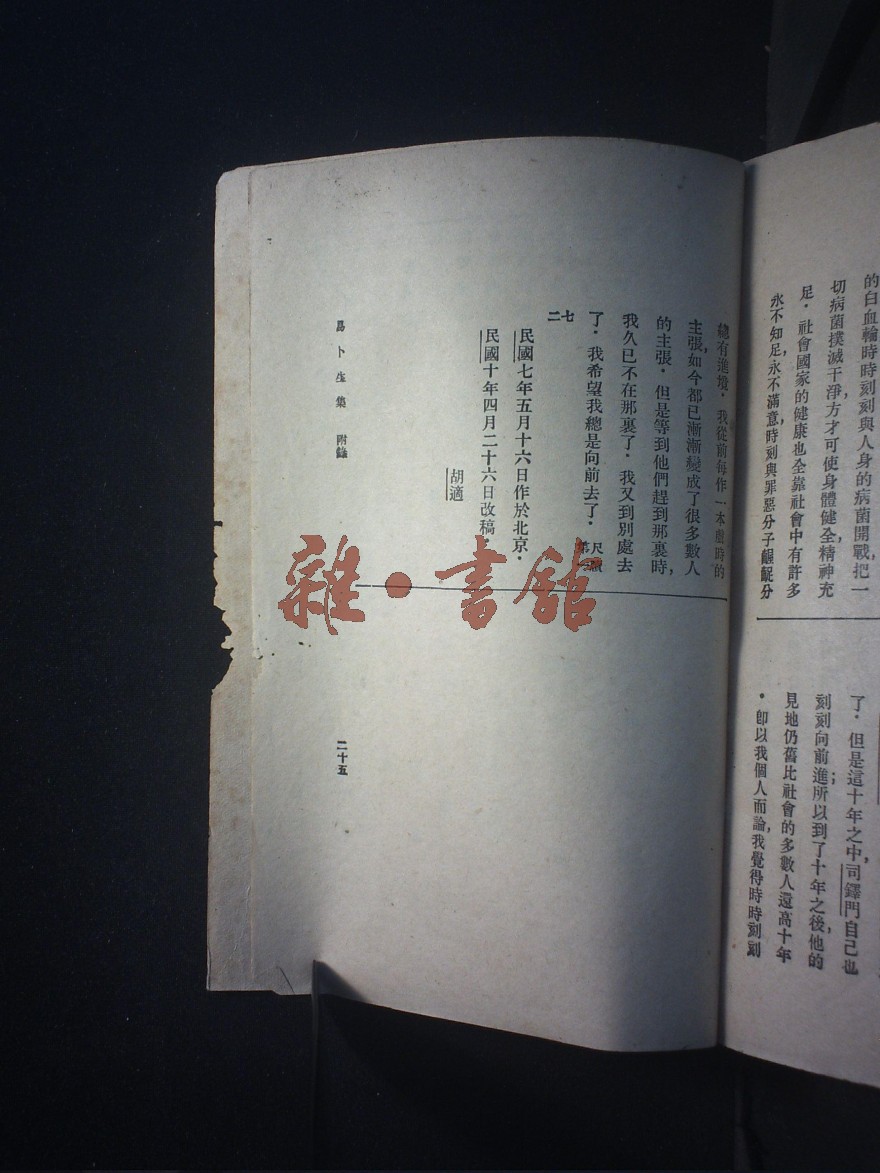 的白血輪時時刻刻與人身的病菌開戰,把一
切病菌撲滅干淨,方才可使身體健全,精神充
足.社會國家的健康也全靠社會中有許多
永不知足,永不滿意,時刻與罪惡分子齷齪分
了.但是這十年之中,司鐸門自己也
刻刻向前進;所以到了十年之後,他的
見地仍舊比社會的多數人還高十年
.即以我個人而論,我覺得時時刻刻
總有進境.我從前每作一本戲時的
主張,如今都已漸漸變成了很多數人
的主張.但是等到他們趕到那裏時,
我久已不在那裏了.我又到別處去
了.我希望我總是向前去了.尺牘第一
二七
民國七年五月十六日作於北京.
民國十年四月二十六日改稿
胡適
易卜生集 附錄
二十五
雜·書館